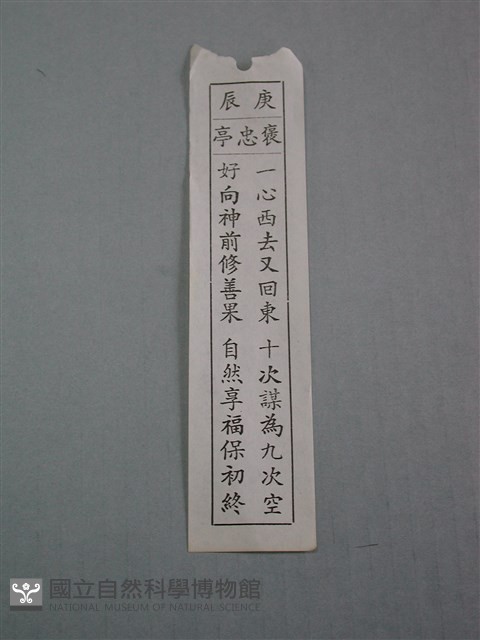 庚辰
褒忠亭
一心西去又回東 十次謀為九次空
好向神前修善果 自然享福保初終
國立自然科學博物館
NATIONAL MUSEUM OF NATURAL SCIENCE